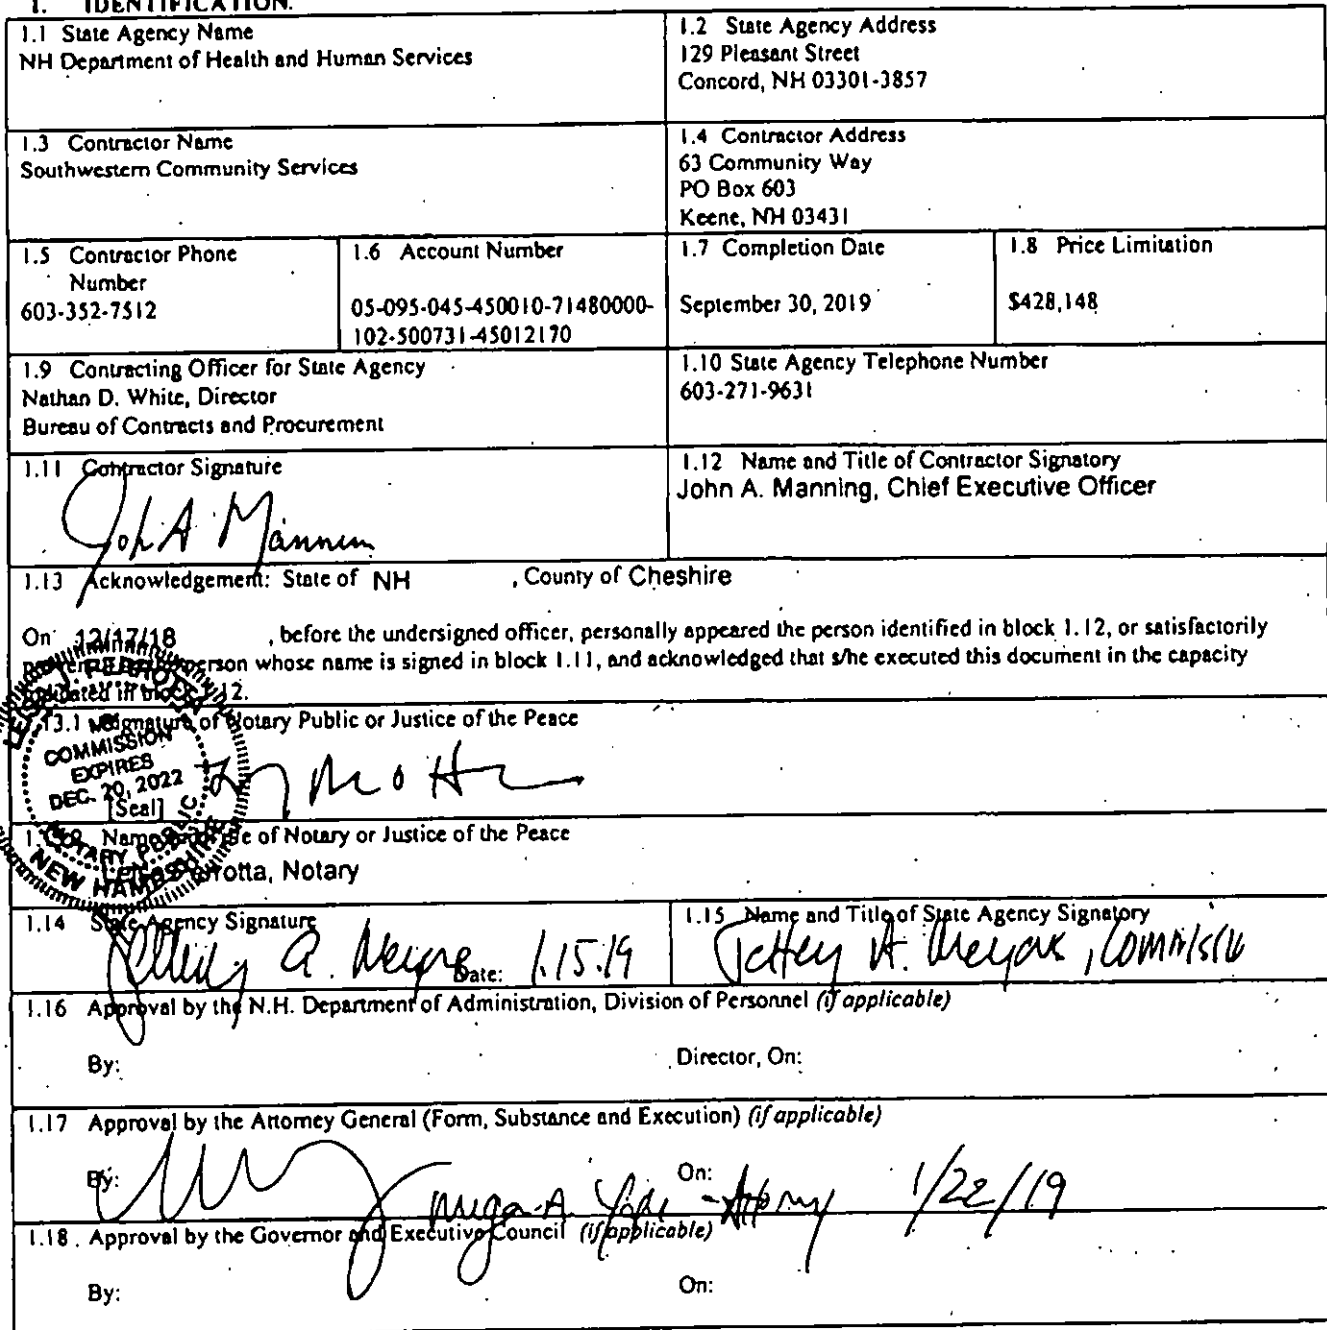 1. IDENTIFICATION.
1.1 State Agency Name
NH Department of Health and Human Services
1.2 State Agency Address
129 Pleasant Street
Concord, NH 03301-3857
1.3 Contractor Name
Southwestern Community Services
1.4 Contractor Address
63 Community Way
PO Box 603
Keene, NH 03431
1.5 Contractor Phone
Number
603-352-7512
1.6 Account Number
05-095-045-450010-71480000-
102-500731-45012170
1.7 Completion Date
September 30, 2019
1.8 Price Limitation
$428,148
1.9 Contracting Officer for State Agency
Nathan D. White, Director
Bureau of Contracts and Procurement
1.10 State Agency Telephone Number
603-271-9631
1.11 Contractor Signature
John A Manning
1.12 Name and Title of Contractor Signatory
John A. Manning, Chief Executive Officer
1.13 Acknowledgement: State of NH , County of Cheshire
On 12/17/18 , before the undersigned officer, personally appeared the person identified in block 1.12, or satisfactorily
person whose name is signed in block 1.11, and acknowledged that s/he executed this document in the capacity
in block 1.12.
13.1 Signature of Notary Public or Justice of the Peace
J. PERROTTA
COMMISSION
EXPIRES
DEC. 20, 2022
[Seal]
NOTARY PUBLIC
NEW HAMPSHIRE
Name of Notary or Justice of the Peace
Notary
1.14 State Agency Signature
Date: 1.15.19
1.15 Name and Title of State Agency Signatory
Jeffrey A. Meyers,
1.16 Approval by the N.H. Department of Administration, Division of Personnel (if applicable)
By: Director, On:
1.17 Approval by the Attorney General (Form, Substance and Execution) (if applicable)
By: On: 1/22/19
1.18 Approval by the Governor and Executive Council (if applicable)
By: On: